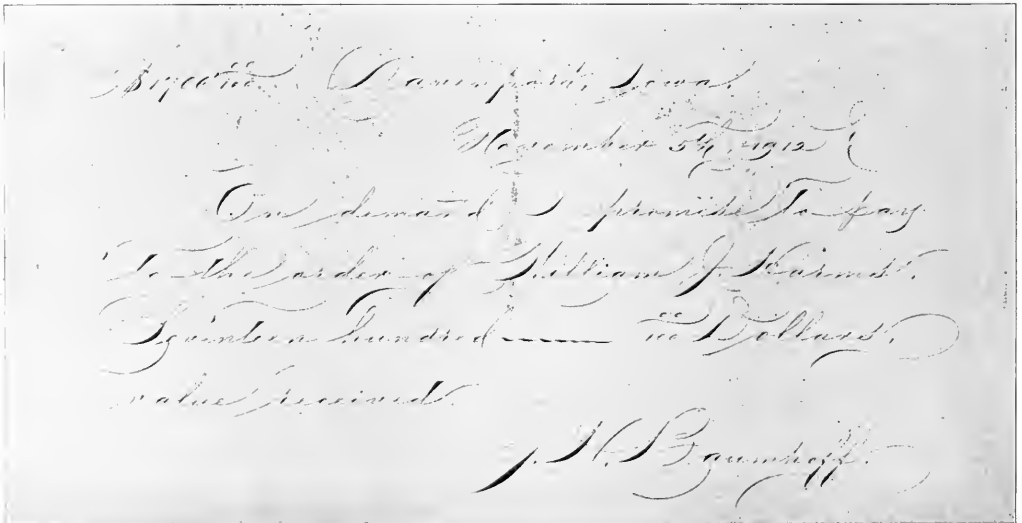 $1700 00/100. Davenport, Iowa.
November 5th, 1912
On demand I promise To pay
To the order of William J. Harmes.
Seventeen hundred —— 00/100 Dollars.
value received.
J. H. Baumhoff.